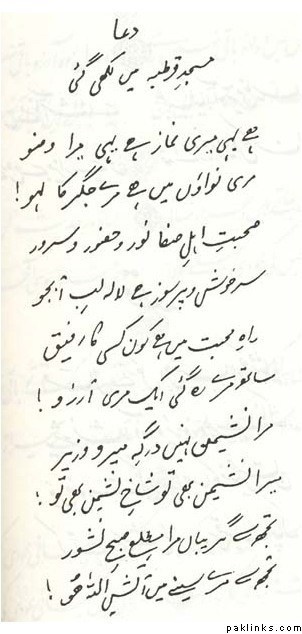 دعا
مسجدِ قرطبہ میں لکھی گئی
ہے یہی میری نماز ہے یہی میرا وضو
مری نواؤں میں ہے مرے جگر کا لہو!
صحبتِ اہلِ صفا نور و حضور و سرور
سرخوش و پرسوز ہے لالہ لبِ آبجو
راہِ محبت میں ہے کون کسی کا رفیق
ساتھ مرے رہ گئی ایک مری آرزو!
مرا نشیمن نہیں درگہِ میر و وزیر
میرا نشیمن بھی تو شاخِ نشیمن بھی تو!
تجھ سے گریباں مرا مطلعِ صبحِ نشور
تجھ سے مرے سینے میں آتشِ اللہ ھو!
paklinks.com